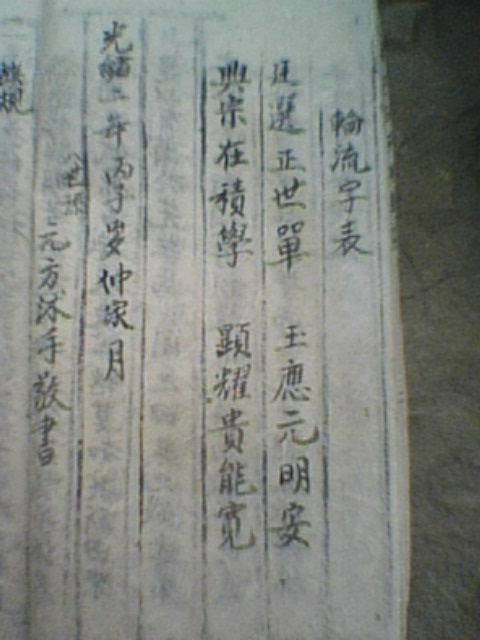 輪流字表
廷選正世單 玉應元明安
興宗在積學 顯耀貴能寬
光緒二年丙子歲仲月
八世孫
元方沐手敬書
族規